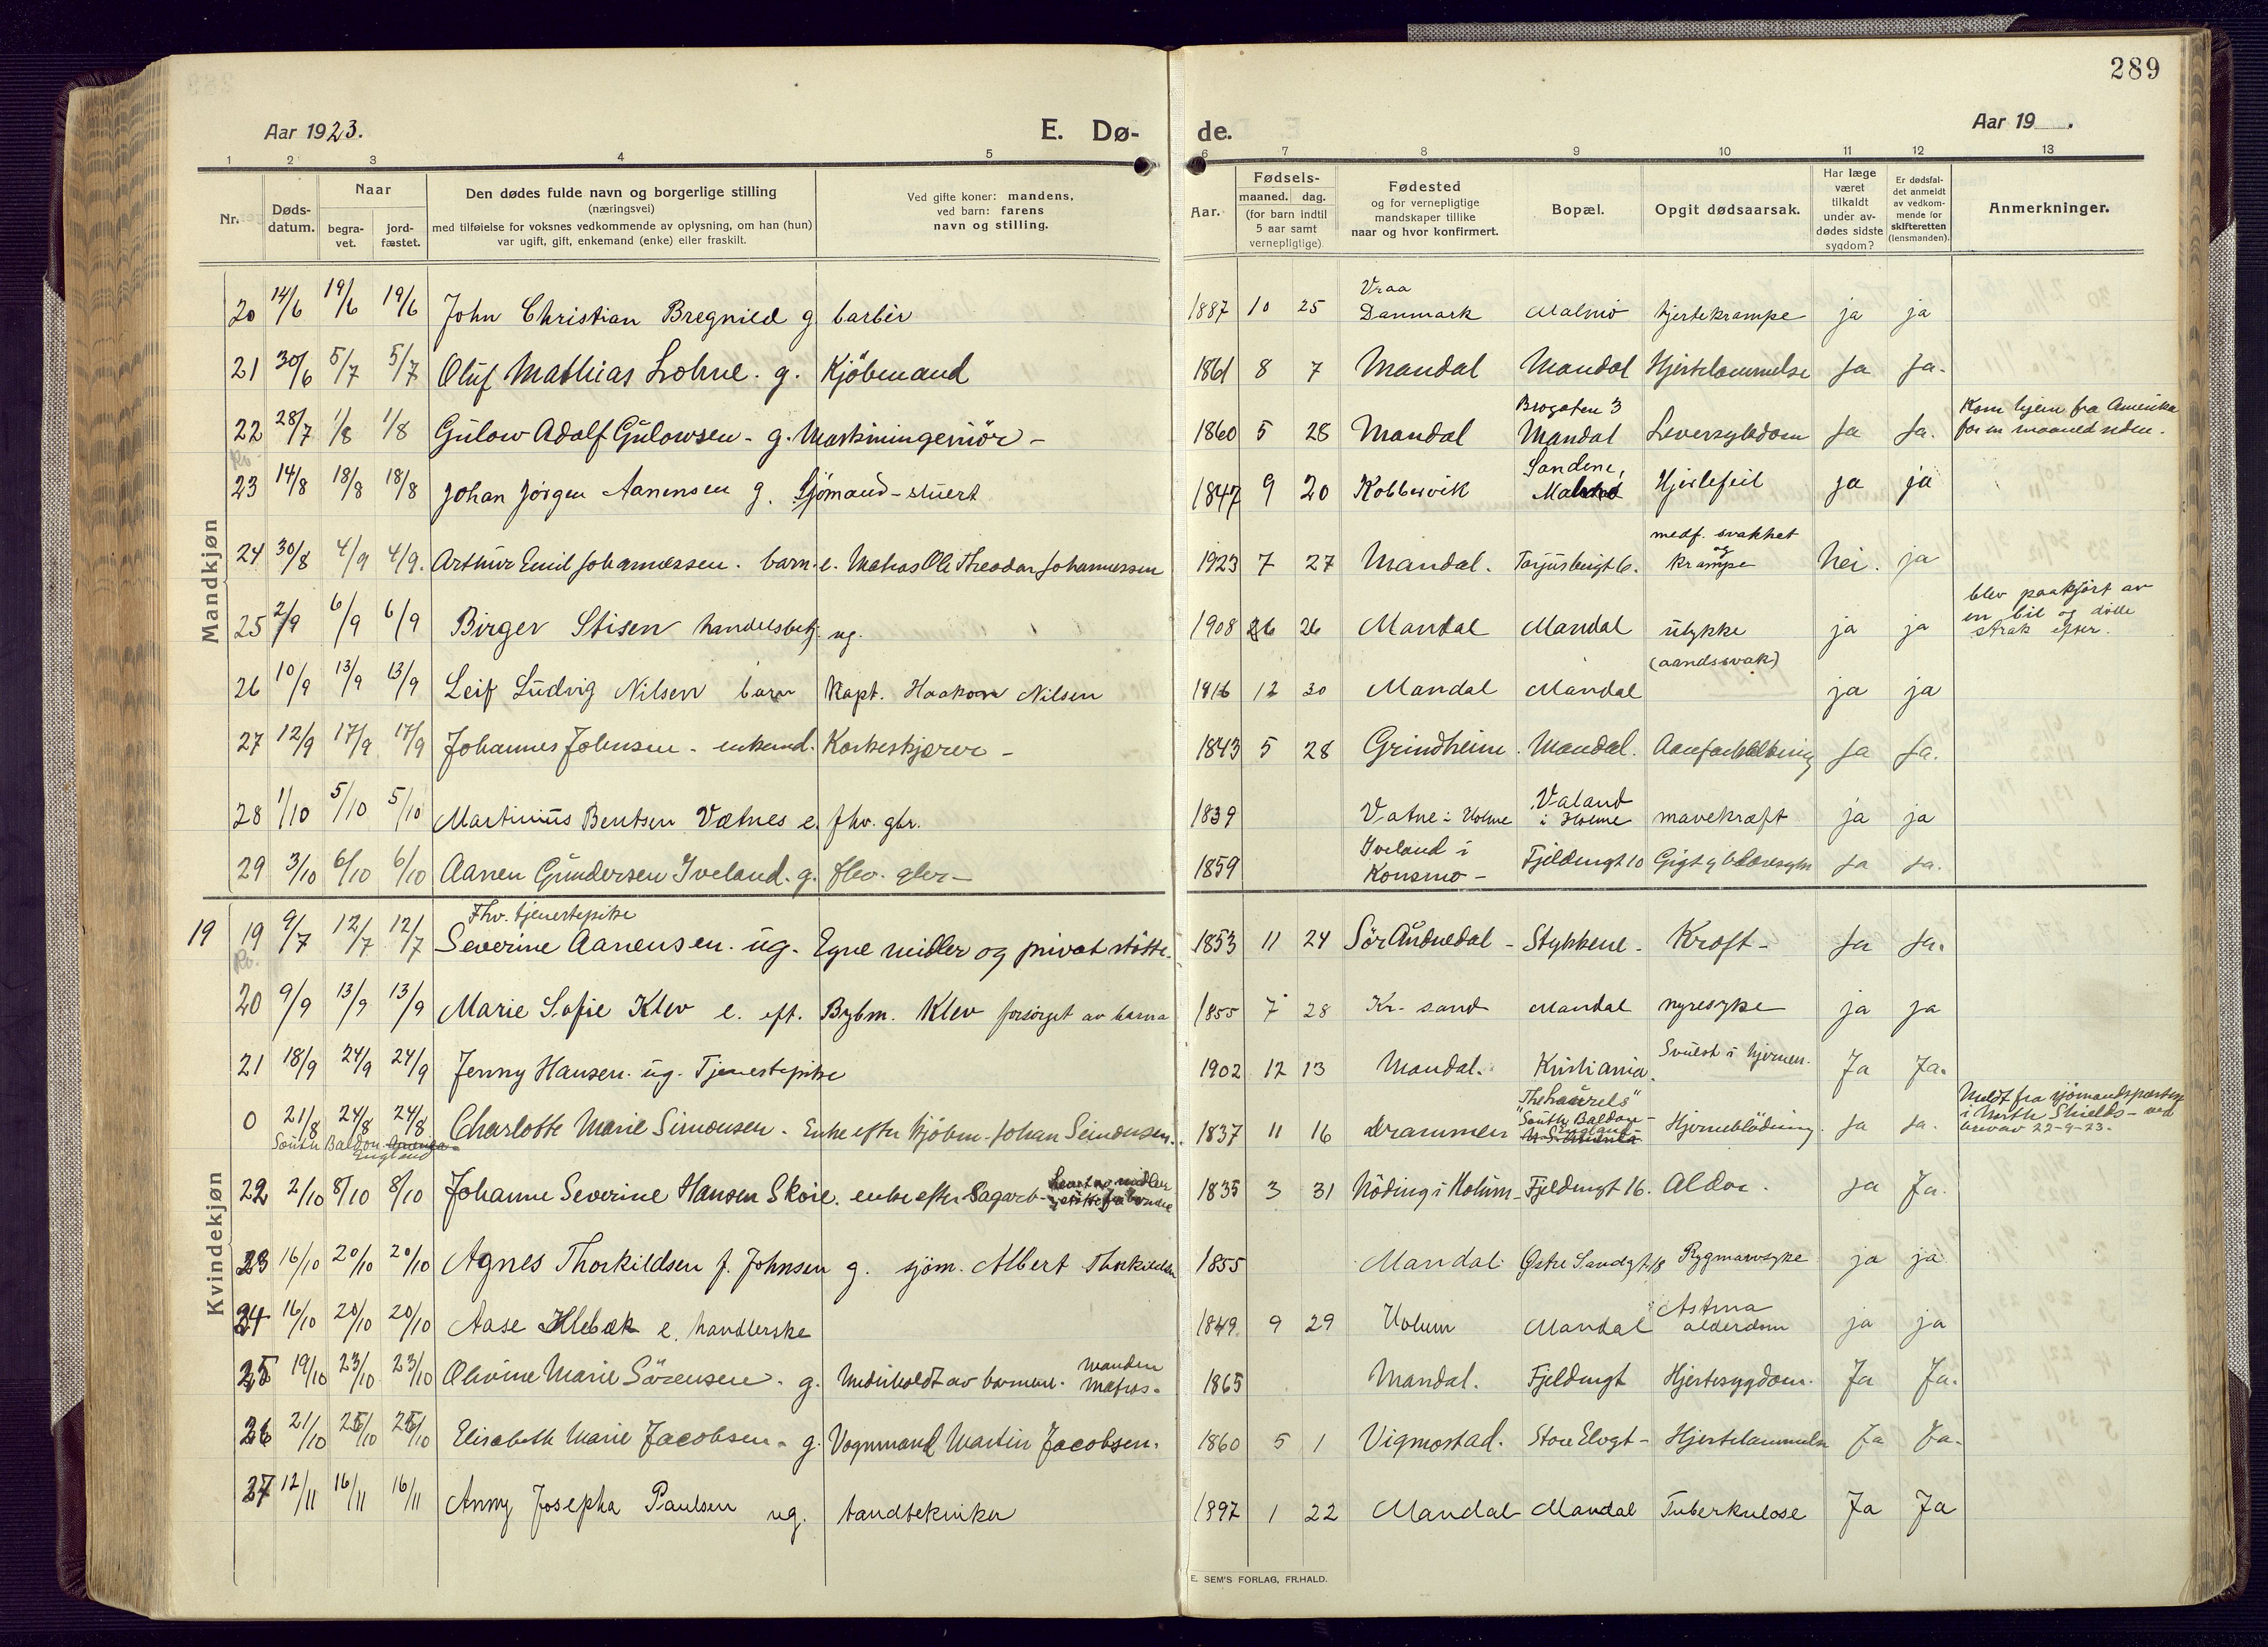 289
Aar 1923.
E. Dø-
de.
Aar 19 .
1 2 3 4 5 6 7 8 9 10 11 12 13
Nr.
Døds-
datum.
Naar
begra-
vet.
jord-
fæstet.
Den dødes fulde navn og borgerlige stilling
(næringsvei)
med tilføielse for voksnes vedkommende av oplysning, om han (hun)
var ugift, gift, enkemand (enke) eller fraskilt.
Ved gifte koner: mandens,
ved barn: farens
navn og stilling.
Aar.
Fødsels-
maaned. dag.
(for barn indtil
5 aar samt
vernepligtige)
Fødested
og for vernepligtige
mandskaper tillike
naar og hvor konfirmert.
Bopæl.
Opgit dødsaarsak.
Har læge
været
tilkaldt
under av-
dødes sidste
sygdom?
Er dødsfal-
det anmeldt
av vedkom-
mende for
skifteretten
(lensmanden).
Anmerkninger.
Mandkjøn
20 14/6 19/6 19/6 John Christian Bregnied g barbér 1887 10 25 Vraa Danmark Malmö hjertekrampe ja ja
21 30/6 5/7 5/7 Oluf Mathias Lohne. g. Kjöbmand 1861 8 7 Mandal Mandal Hjertelammelse Ja Ja.
22 28/7 1/8 1/8 Gulow Adolf Gulowsen - g. Maskiningeniör - 1860 5 28 Mandal Brogaten 3 Mandal Leversykdom Ja Ja. Kom hjem fra Amerika for en maaned siden.
23 14/8 18/8 18/8 Johan Jörgen Aanensen g. Sjömand - stuert 1847 9 20 Kobbervik Sandene, Hjertefeil ja ja
24 30/8 4/9 4/9. Arthur Emil Johannessen. barn. e. Matros Ole Theodor Johannessen 1923 7 27 Mandal. Torjusbrugt 6. medf. svakhet og krampe Nei. ja
25 2/9 6/9 6/9 Birger Stisen handelsbetj. ug. 1908 26 Mandal Mandal ulykke ja ja blev paakjört av en bil og döde strak efter.
26 10/9 13/9 13/9 Leif Ludvig Nilsen barn Kapt. Haakon Nilsen 1916 12 30 Mandal Mandal (aandssvak) ja ja
27 12/9 17/9 17/9 Johannes Johnsen - enkemd. Korkeskjærer - 1843 5 28 Grindheim. Mandal. Aareforkalkning Ja Ja.
28 1/10 5/10 5/10 Martinius Bentsen Vatnes e. fhv. gbr. 1839 Vatne i Holme Valand i Holme mavekræft ja ja
29 3/10 6/10 6/10 Aanen Gundersen Iveland. g. fhv. gbr - 1859 Iveland i Konsmo - Fjeldungt 10 Gigt og blæresygdm Ja Ja.
Kvindekjøn
19 19 9/7 12/7 12/7 Fhv. tjenestepike Severine Aanensen. ug. Egne midler og privat stötte. 1853 11 24 Sör Audnedal - Stykkene - Kræft - Ja Ja.
20 9/9 13/9 13/9 Marie Sofie Klev e. eft. Bybm. Klev forsörget av barna 1855 7 28 Kr. sand Mandal nyresyke ja ja
21 18/9 24/9 24/9 Jenny Hansen. ug. Tjenestepike 1902 12 13 Mandal. Kristiania. Svulst i hjernen. Ja Ja.
0 21/8 24/8 24/8 Charlotte Marie Simonsen. Enke efter kjöbm. Johan Simonsen. 1837 11 16 Drammen "The Laurels" South Baldon - England Hjerneblödning. Ja Ja. Meldt fra sjömandspresten i North Shields - ved brev av 22-9-23.
South Baldon England
22 2/10 8/10 8/10 Johanne Severine Hansen Skoie. enke efter Sagarb - 1835 3 31 Nöding i Holum - Fjeldungt 16. Aldor. Ja Ja.
23 16/10 20/10 20/10 Agnes Thorkildsen f. Johnsen g. sjöm. Albert Thorkildsen 1855 Mandal Østre Sandgt 18 Rygmarvsyke ja ja
24 16/10 20/10 20/10 Aase Hlebæk e. handlerske 1849 9 29 Holum Mandal Astma alderdom ja ja
25 19/10 23/10 23/10 Olivine Marie Sörensen - g. Underholdt av barnene. manden matros. 1865 Mandal. Fjeldungt Hjertesygdom. Ja Ja.
26 21/10 25/10 25/10 Elisabeth Marie Jacobsen - g. Vognmand Martin Jacobsen. 1860 5 1 Vigmostad. Store Elvgt - Hjertelammelse Ja Ja.
27 12/11 16/11 16/11 Anny Josepha Paulsen ug. tandtekniker 1897 1 22 Mandal Mandal Tuberkulose Ja Ja
E. SEM'S FORLAG, FR.HALD.